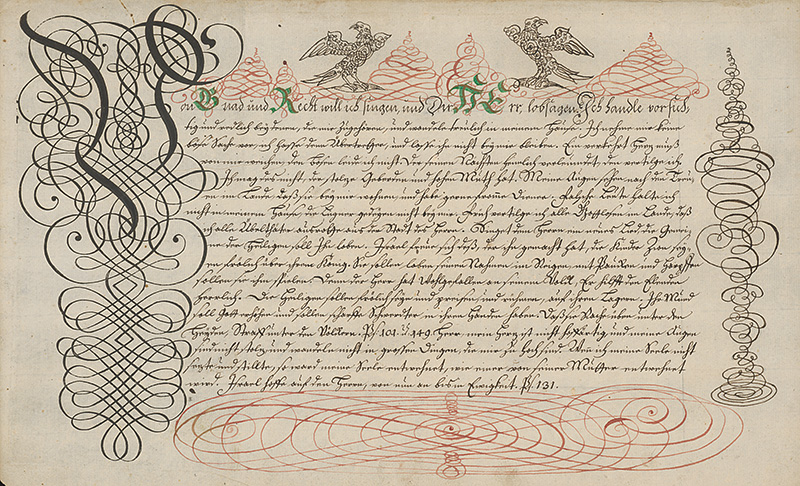 Von Gnad und Recht will ich singen, und Dir HErr, lobsagen. Ich handle vorsich,
tig und redlich bey denen, die mir zugehören, und wandele treulich in meinem Hause. Ich nehme mir keine
böse Sache vor, ich hasse den Übertretter, und lasse ihn nicht bey mir bleiben. Ein verkehrt Herz muß
von mir weichen, den Bösen leide ich nicht. Der seinen Nächsten heimlich verleumdet, den vertilge ich
Ich mag des nicht, der stolze Geberden und hohen Muth hat. Meine Augen sehen nach den Treu,
en im Lande, daß sie bey mir wohnen, und habe gerne fromme Diener. Falsche Leute halte ich
nicht in meinem Hause, die Lügner gedeyen nicht bey mir. Früh vertilge ich alle Gottlosen im Lande, daß
ich alle Übelthäter ausrotte aus der Stadt des Herrn. Singet dem Herrn ein neues Lied, die Gemei,
ne der Heiligen soll Ihn loben. Israel freue sich deß, der ihn gemacht hat, die Kinder Zion sey,
en frölich über ihrem König. Sie sollen loben seinen Nahmen im Reigen, mit Paucken und Harpffen
sollen sie ihm spielen. Denn der Herr hat Wohlgefallen an seinem Volck. Er hilfft den Elenden
herrlich. Die Heiligen sollen frölich seyn und preisen, und rühmen, auf ihren Lagern. Ihr Mund
soll Gott erhöhen und sollen scharffe Schwerdter in ihren Händen haben. Daß sie Rache üben unter den
Heyden, Straff unter den Völkern. Ps. 101. u 149. Herr, mein Herz ist nicht hoffärtig, und meine Augen
sind nicht stolz, und wandele nicht in grossen Dingen, die mir zu hoch sind. Wen ich meine Seele nicht
setzte und stillte, so ward meine Seele entwehnet, wie einer von seiner Mutter entwehnet
wird. Israel hoffe auf den Herrn, von nun an bis in Ewigkeit. Ps. 131.